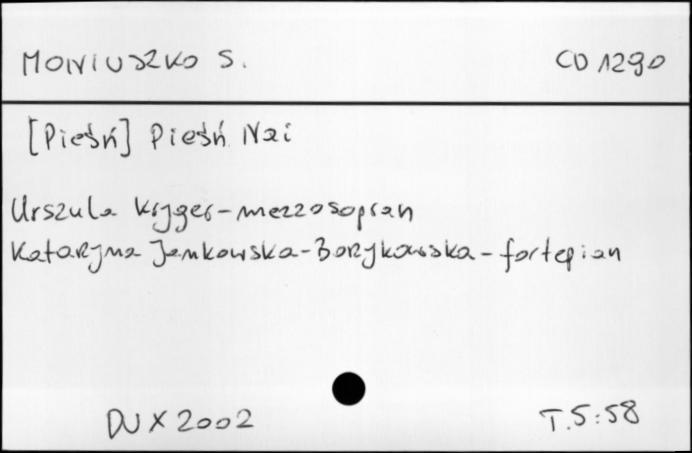 MONIUSZKO S. CD 1290
[Pieśń] Pieśń Nai
Urszula Kryger - mezzosopran
Katarzyna Jankowska-Borzykowska - fortepian
DUX 2002 T. 5:58